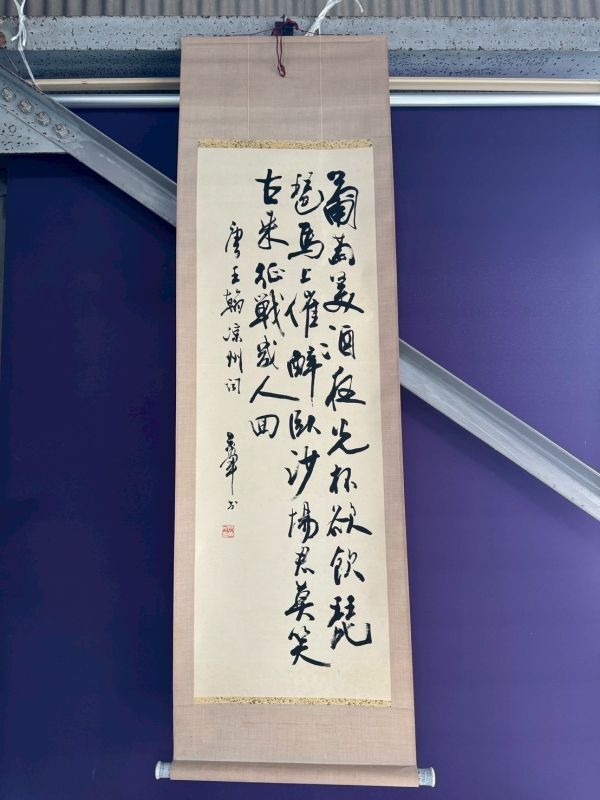 葡萄美酒夜光杯欲飲琵
琶馬上催醉臥沙場君莫笑
古来征戦幾人回
唐王翰涼州詞
書